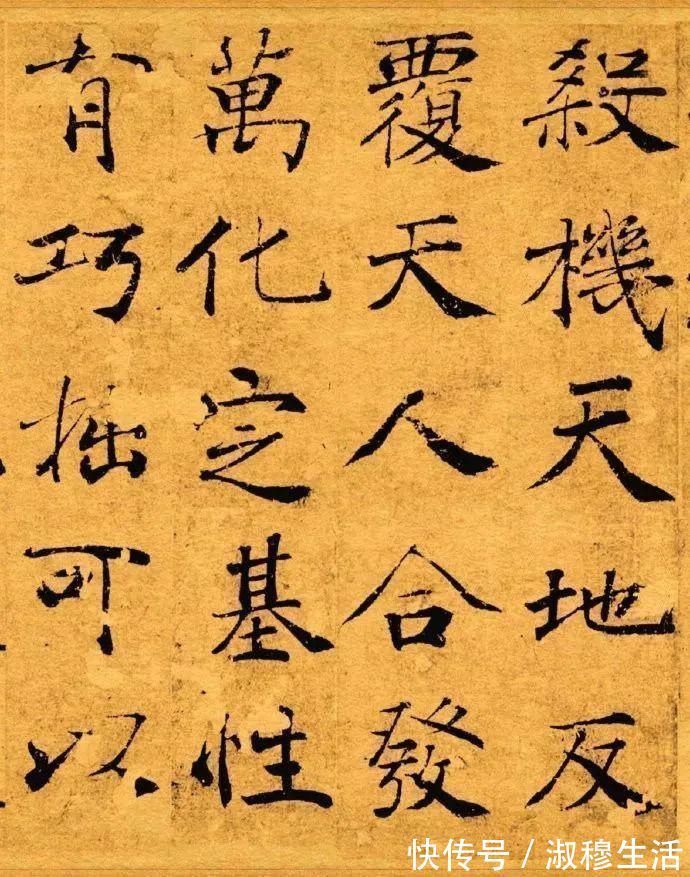 殺機天地反
覆天人合發
萬化定基性
有巧拙可以
快传号/淑穆生活